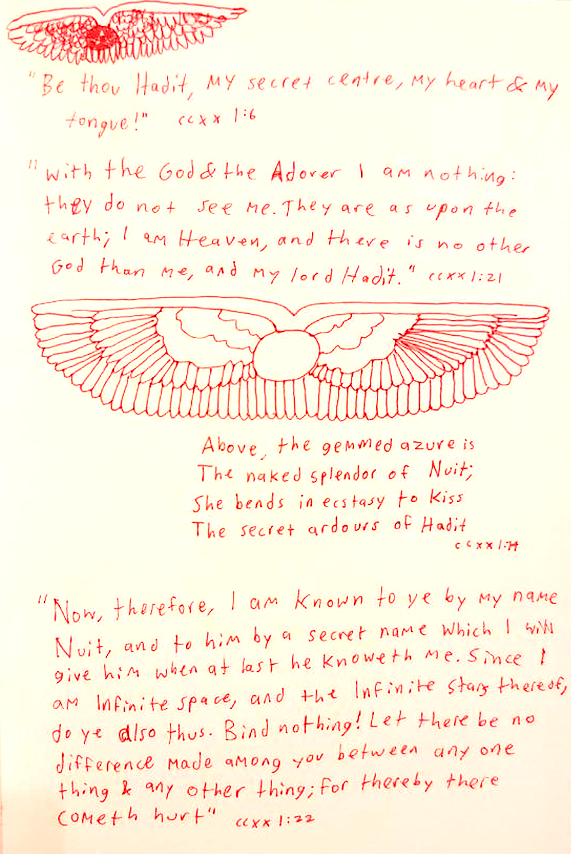 "Be thou Hadit, my secret centre, my heart & my
tongue!" ccxx 1:6
"With the God & the Adorer I am nothing:
they do not see me. They are as upon the
earth; I am Heaven, and there is no other
God than me, and my lord Hadit." ccxx 1:21
Above, the gemmed azure is
The naked splendor of Nuit;
She bends in ecstasy to Kiss
The secret ardours of Hadit
ccxx 1:14
"Now, therefore, I am Known to ye by my name
Nuit, and to him by a secret name which I will
give him when at last he Knoweth me. Since I
am Infinite space, and the Infinite Stars thereof,
do ye also thus. Bind nothing! Let there be no
difference made among you between any one
thing & any other thing; for thereby there
cometh hurt" ccxx 1:22